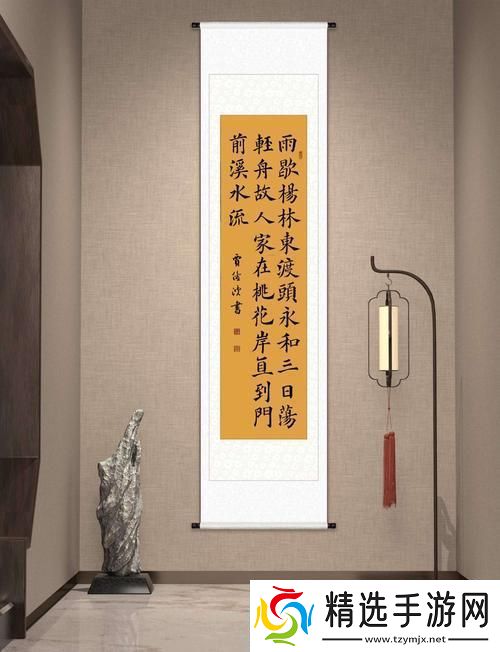 雨歇楊林東渡頭永和三日蕩
輕舟故人家在桃花岸直到門
前溪水流
書
精选手游网
www.tzymjx.net